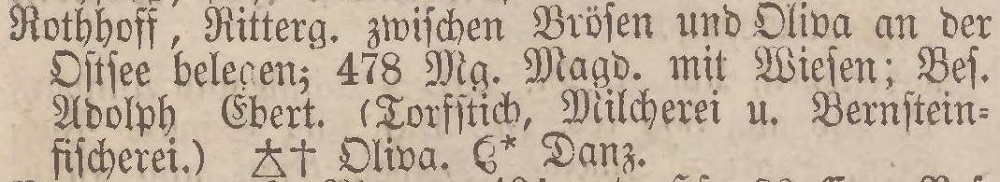 Rothhoff, Ritterg. zwischen Brösen und Oliva an der
Ostsee belegen; 478 Mg. Magd. mit Wiesen; Bes.
Adolph Ebert. (Torfstich, Milcherei u. Bernstein=
fischerei.) ⚻† Oliva. * Danz.